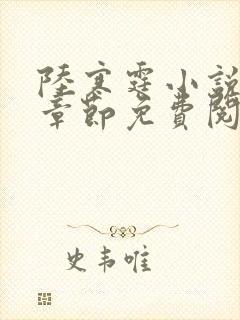 陸寒霆小說
章節免費閱
史韦唯